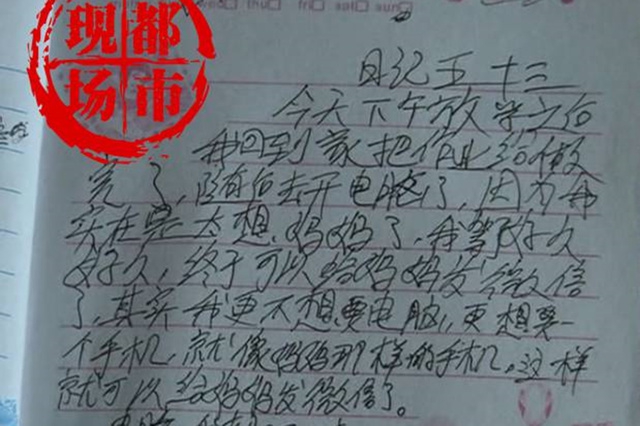 wed thu fri sat sun
现都
场市
日记五十三
今天下午放学之后
我回到家把作业给做
完了,随后去开电脑了,因为我
实在是太想妈妈了,我等了好久
好久,终于可以给妈妈发微信
了,其实我更不想要电脑,更想要一
个手机,就像妈妈那样的手机。这样
就可以给妈妈发微信了。